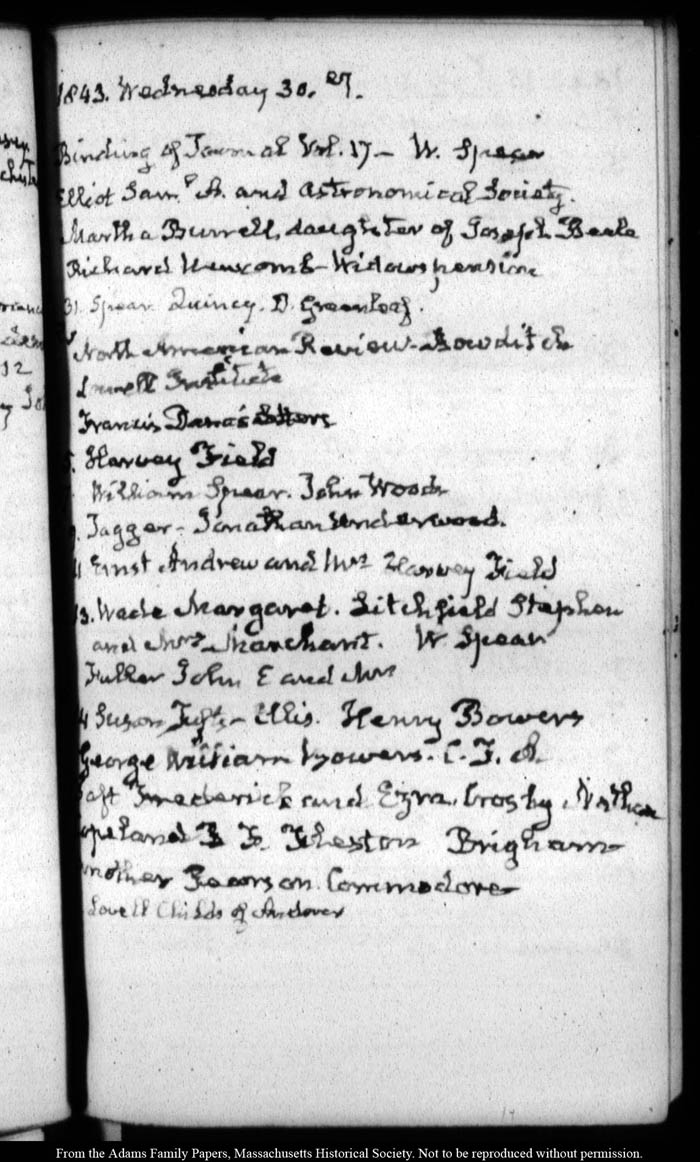 1843. Wednesday 30. 27.
Binding of Journal Vol. 17 - W. Spear
Elliot Saml. A. and Astronomical Society.
Martha Burrell, daughter of Joseph Beale
Richard Newcomb - Widows pension
31. Spear. Quincy. D. Greenleaf.
North American Review - Bowditch
Lowell Institute
Francis Dana's Letters
5. Harvey Field
William Spear. John Wood
9. Jagger - Jonathan Underwood.
11 Ernst Andrew and Mrs Harvey Field
13. Wade Margaret. Litchfield Stephen
and Mrs. Marchant. W Spear
Fuller John E and Mrs
14 Susan Ellis. Henry Bowers
George William Bowers. C. F. A.
Taft Frederick and Ezra. Crosby Nathan
Copeland B F. Brigham
another Pearson Commodore
Lovell Childs of Andover
12
From the Adams Family Papers, Massachusetts Historical Society. Not to be reproduced without permission.